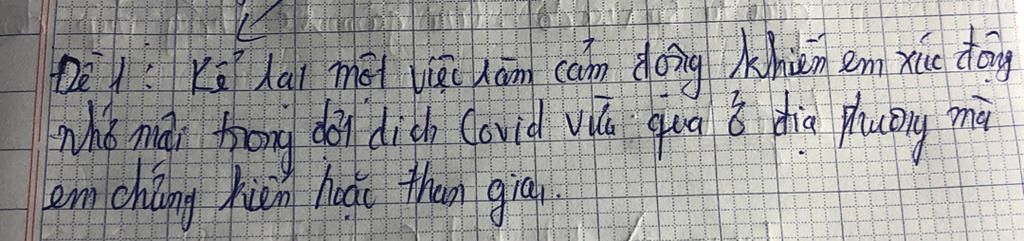 Đề 1: Kể lại một việc làm cảm động khiến em xúc động
nhớ mãi trong đợt dịch Covid vừa qua ở địa phương mà
em chứng kiến hoặc tham gia.